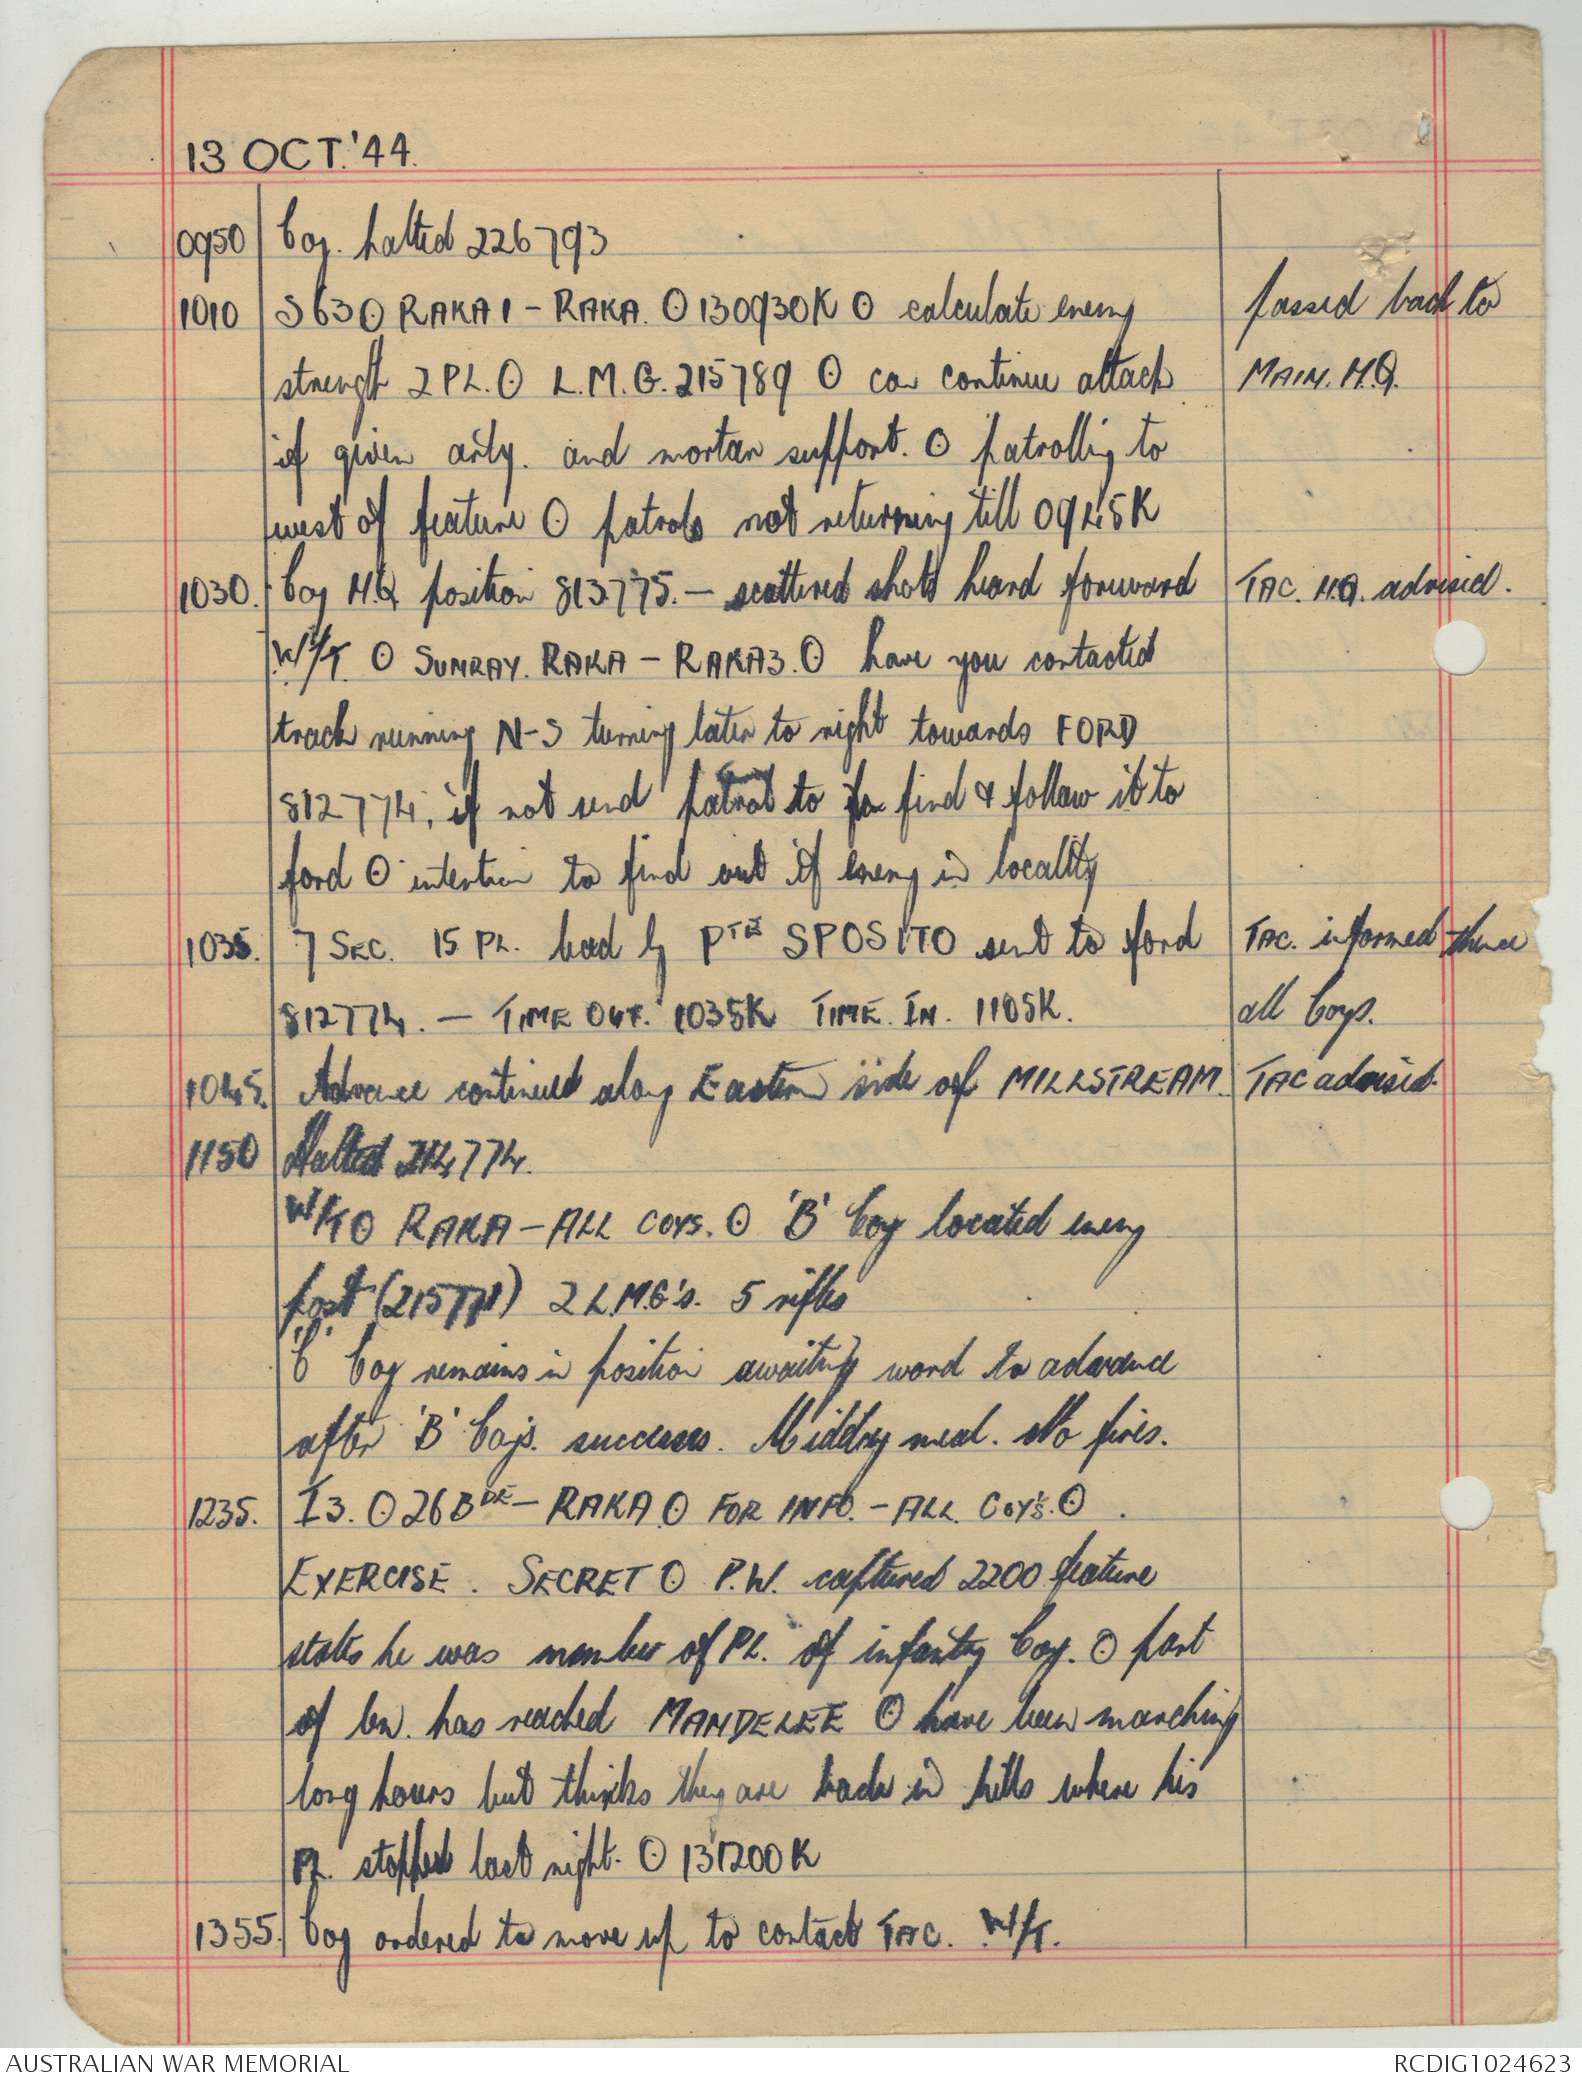 13 OCT. '44.
0950 Coy. halted 226793
1010 S63 ʘ RAKA 1 - RAKA. ʘ 130930K ʘ calculate enemy passed back to
strength 2 PL. ʘ L.M.G. 215789 ʘ can continue attack MAIN. H.Q.
if given arty. and mortar support. ʘ patrolling to
west of feature ʘ patrols not returning till 0945K
1030. Coy H.Q position 813775. - scattered shots heard forward TAC. H.Q. advised.
W/T ʘ SUNRAY. RAKA - RAKA3. ʘ have you contacted
track running N-S turning later to right towards FORD
812774, if not send patrol to find & follow it to
ford ʘ intention to find out if enemy in locality
1035. 7 SEC. 15 PL. lead by PTE SPOSITO sent to ford TAC. informed thence
812774. - TIME OUT. 1035K TIME. IN. 1105K. all Coys.
1045. Advance continued along Eastern side of MILLSTREAM. TAC advised.
1150 Halted 214774.
W/T ʘ RAKA - ALL COYS. ʘ 'B' Coy located enemy
post ( ) 2 L.M.G's. 5 rifles
'C' Coy remains in position awaiting word to advance
after 'B' Coy's. success. Midday meal. No fires.
1235. I3. ʘ 26 BDE - RAKA ʘ FOR INFO. - ALL. COY'S. ʘ .
EXERCISE. SECRET ʘ P.W. captured 2200 feature
states he was member of PL. of infantry Coy. ʘ part
of bn. has reached MANDELEE ʘ have been marching
long hours but thinks they are back in hills where his
PL. stopped last night. ʘ 131200K
1355. Coy ordered to move up to contact TAC. W/T.
AUSTRALIAN WAR MEMORIAL
RCDIG1024623